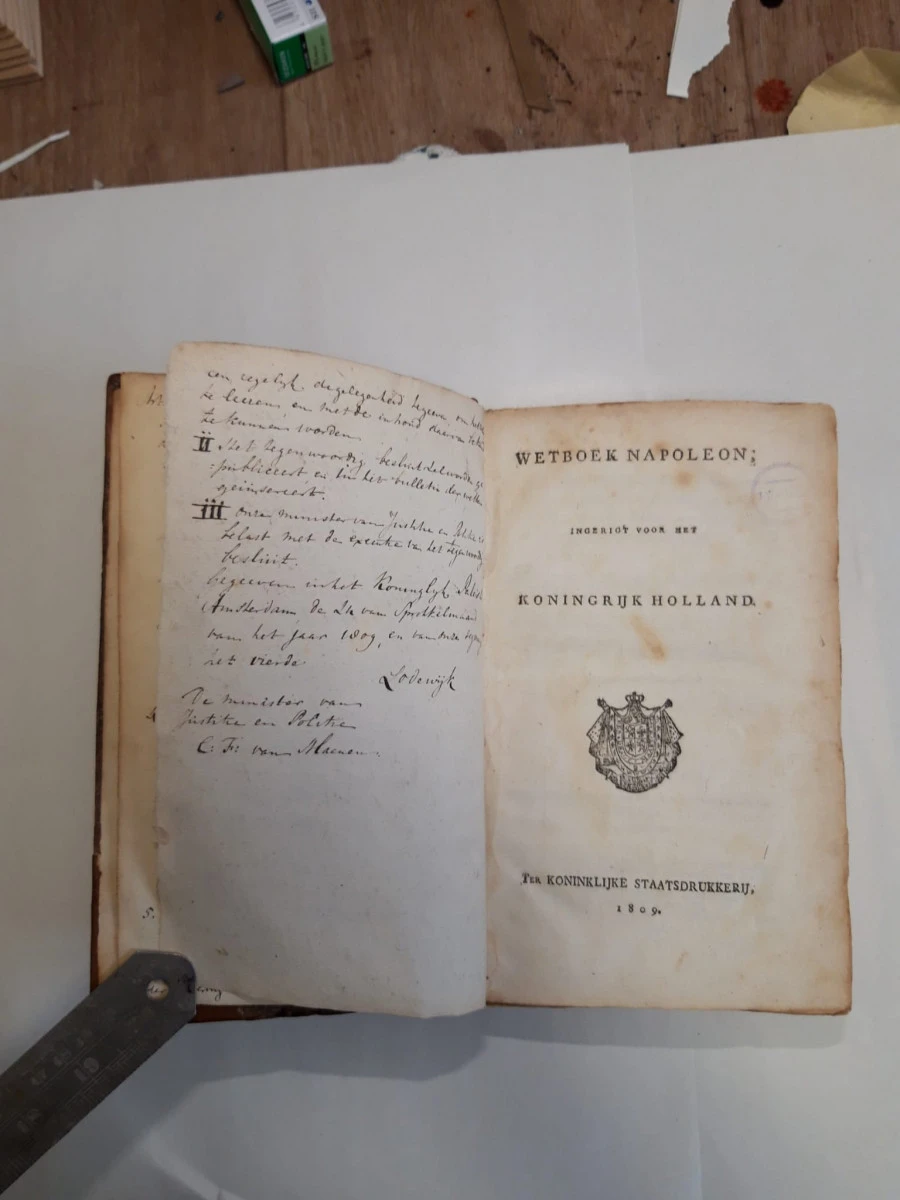 een regelyk de gelegenheid te geeven om het
te leeren en met de inhoud daarvan
te kunnen worden
II Het tegenwoordig besluit zal worden ge
publiceert en in het bulletin der wetten
geinsereert.
III onze minister van Justitie en Politie is
belast met de executie van het tegenwoordig
besluit.
Gegeeven in het Koninglyk Paleis
Amsterdam de 24 van Sprokkelmaand
van het jaar 1809, en van onze
het vierde
Lodewijk
De minister van
Justitie en Politie
C: F: van Maanen
5.
WETBOEK NAPOLEON;
INGERIGT VOOR HET
KONINGRIJK HOLLAND.
TER KONINKLIJKE STAATSDRUKKERIJ,
1809.